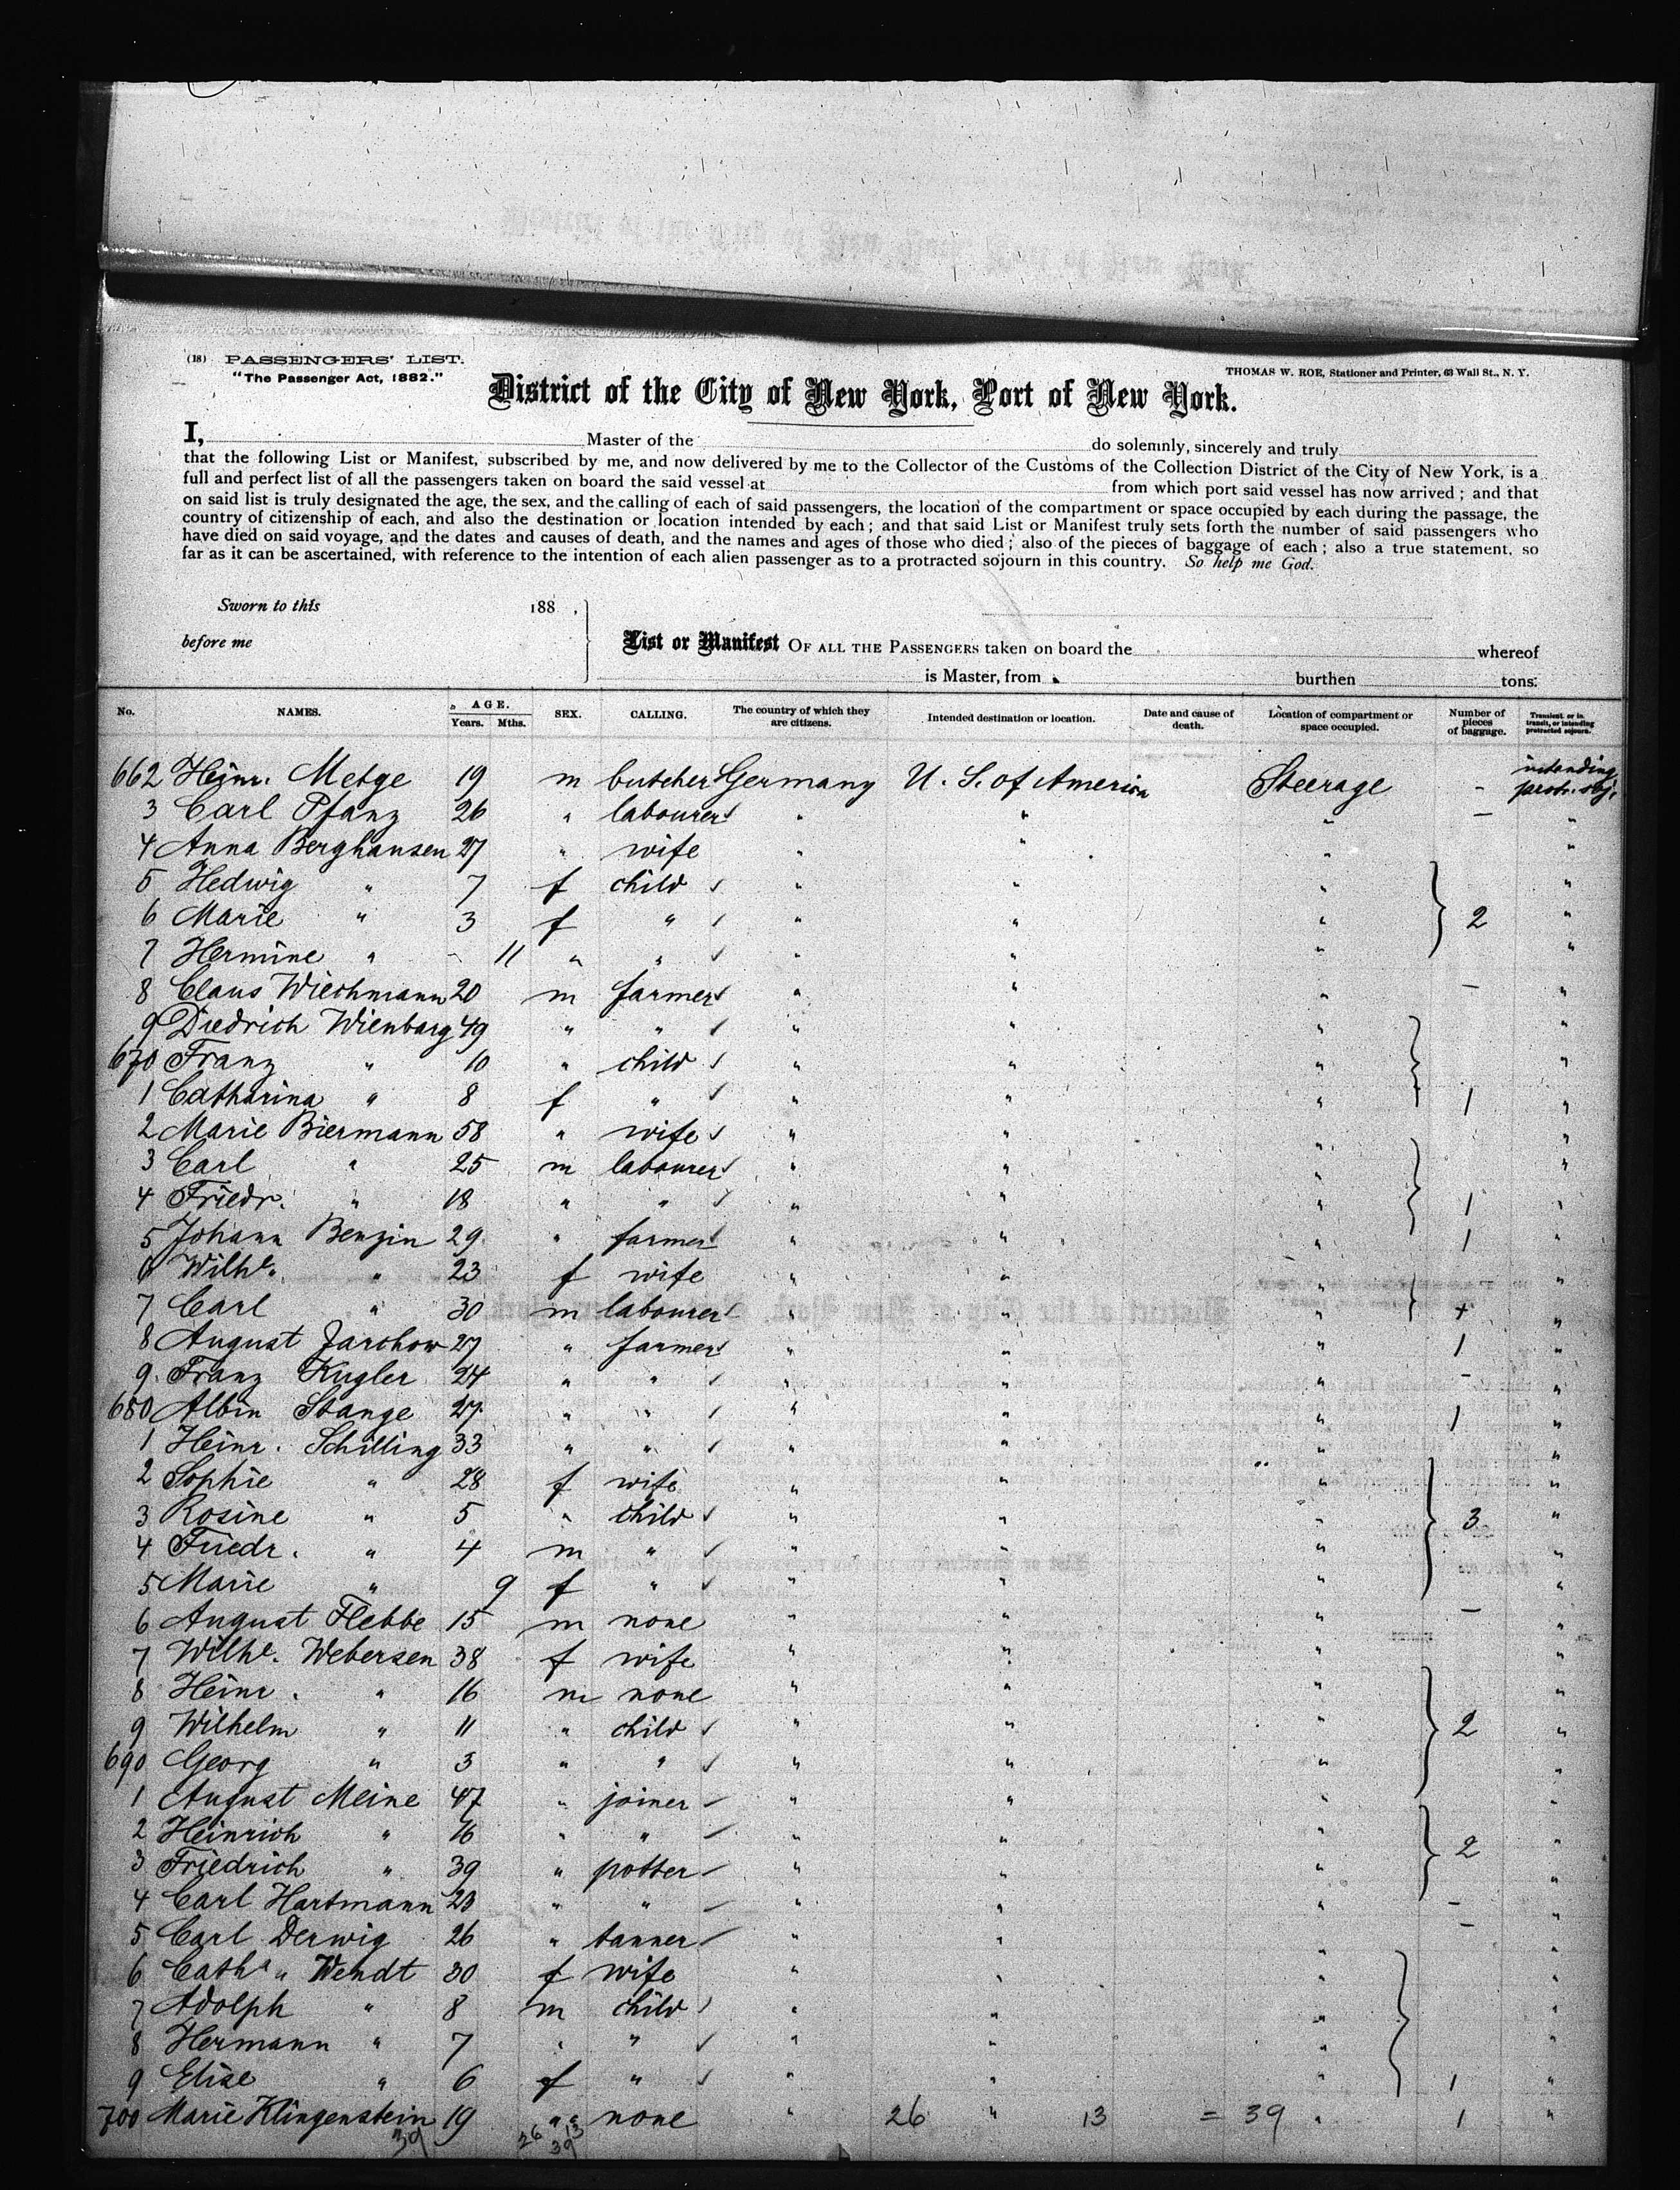 (18) PASSENGERS' LIST.
"The Passenger Act, 1882."
THOMAS W. ROE, Stationer and Printer, 63 Wall St., N. Y.
District of the City of New York, Port of New York.
I, Master of the do solemnly, sincerely and truly
that the following List or Manifest, subscribed by me, and now delivered by me to the Collector of the Customs of the Collection District of the City of New York, is a
full and perfect list of all the passengers taken on board the said vessel at from which port said vessel has now arrived; and that
on said list is truly designated the age, the sex, and the calling of each of said passengers, the location of the compartment or space occupied by each during the passage, the
country of citizenship of each, and also the destination or location intended by each; and that said List or Manifest truly sets forth the number of said passengers who
have died on said voyage, and the dates and causes of death, and the names and ages of those who died; also of the pieces of baggage of each; also a true statement, so
far as it can be ascertained, with reference to the intention of each alien passenger as to a protracted sojourn in this country. So help me God.
Sworn to this 188 ,
before me
List or Manifest OF ALL THE PASSENGERS taken on board the whereof
is Master, from burthen tons.
No. NAMES. AGE. Years. Mths. SEX. CALLING. The country of which they are citizens. Intended destination or location. Date and cause of death. Location of compartment or space occupied. Number of pieces of baggage. Transient or in transit, or intending protracted sojourn.
662 Heinr. Metge 19 m butcher Germany U. S. of America Steerage - intending protr. soj.
3 Carl Pfanz 26 " labourer " " " - "
4 Anna Berghausen 27 " wife " " " "
5 Hedwig " 7 f child " " " "
6 Marie " 3 f " " " " 2 "
7 Hermine " - 11 " " " " " "
8 Claus Wiechmann 20 m farmer " " " - "
9 Diedrich Wienbarg 49 " " " " " "
670 Franz " 10 " child " " " "
1 Catharina " 8 f " " " " 1 "
2 Marie Biermann 58 " wife " " " "
3 Carl " 25 m labourer " " " "
4 Friedr. " 18 " " " " " 1 "
5 Johann Benzin 29 " farmer " " " 1 "
6 Wilhe. " 23 f wife " " " "
7 Carl " 30 m labourer " " " + "
8 August Jarchow 27 " farmer " " " 1 "
9 Franz Kugler 24 " " " " " - "
680 Albin Stange 27 " " " " " 1 "
1 Heinr. Schilling 33 " " " " " "
2 Sophie " 28 f wife " " " "
3 Rosine " 5 " child " " " 3 "
4 Friedr. " 4 m " " " " "
5 Marie " 9 f " " " " "
6 August Flebbe 15 m none " " " - "
7 Wilhe. Webersen 38 f wife " " " "
8 Heinr. " 16 m none " " " "
9 Wilhelm " 11 " child " " " 2 "
690 Georg " 3 " " " " " "
1 August Meine 47 " joiner " " " "
2 Heinrich " 16 " " " " " "
3 Friedrich " 39 " potter " " " 2 "
4 Carl Hartmann 20 " " " " " - "
5 Carl Derwig 26 " tanner " " " - "
6 Catha " Wendt 30 f wife " " " "
7 Adolph " 8 m child " " " "
8 Hermann " 7 " " " " " "
9 Elise " 6 f " " " " 1 "
700 Marie Klingenstein 19 " " none " 26 " 13 = 39 " 1 "
39 26 13
39